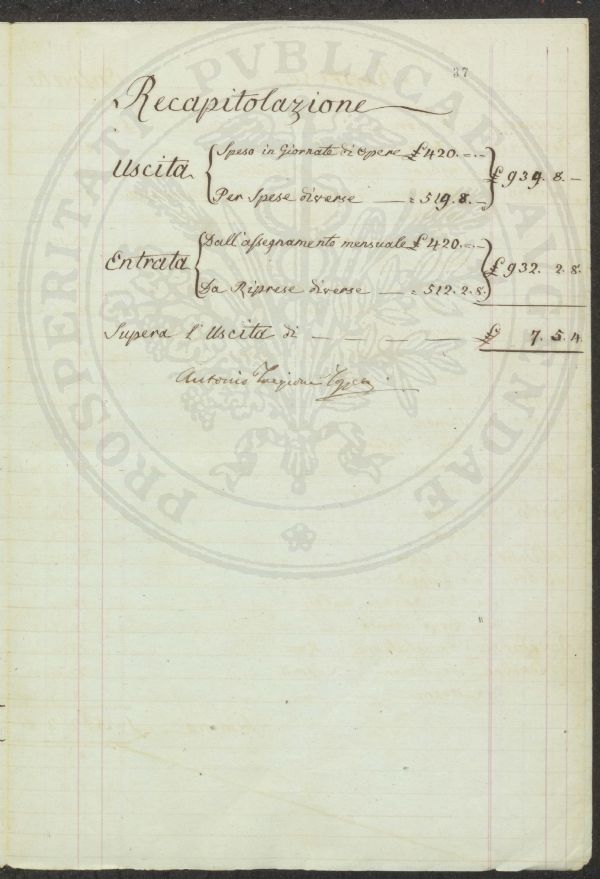 37
Recapitolazione
Uscita { Speso in Giornate di Opere £ 420. - . - } £ 939. 8. -
Per Spese diverse — = 519. 8. -
Entrata { Dall'assegnamento mensuale £ 420. - . - } £ 932. 2. 8.
Da Riprese diverse — = 512. 2. 8.
Supera l'Uscita di — — — — — £ 7. 5. 4.
Antonio
PROSPERITATI PVBLICAE AVGENDAE